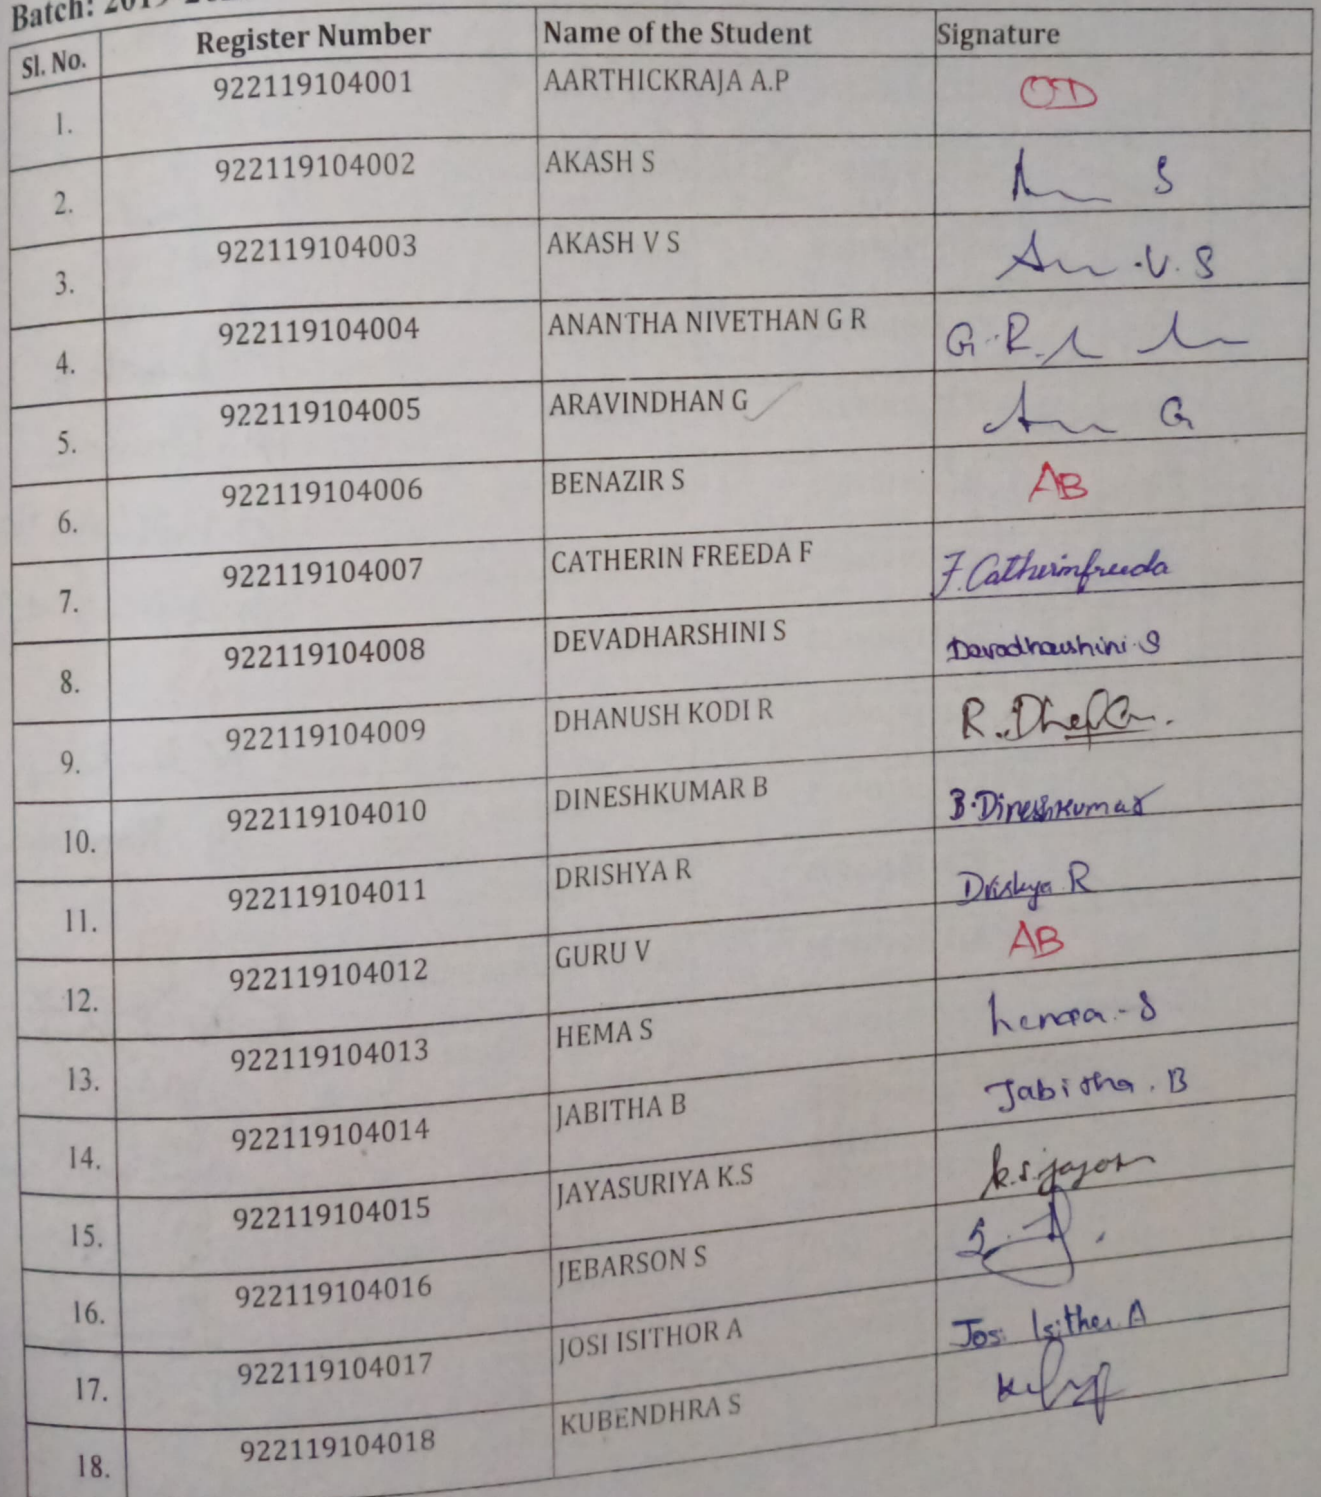 Batch: 2019
Sl. No. Register Number Name of the Student Signature
1. 922119104001 AARTHICKRAJA A.P OD
2. 922119104002 AKASH S S
3. 922119104003 AKASH V S V. S
4. 922119104004 ANANTHA NIVETHAN G R G. R.
5. 922119104005 ARAVINDHAN G G
6. 922119104006 BENAZIR S AB
7. 922119104007 CATHERIN FREEDA F F. Catherinfreeda
8. 922119104008 DEVADHARSHINI S Devadharshini. S
9. 922119104009 DHANUSH KODI R R.
10. 922119104010 DINESHKUMAR B B. Dineshkumar
11. 922119104011 DRISHYA R Drishya R
12. 922119104012 GURU V AB
13. 922119104013 HEMA S hema - S
14. 922119104014 JABITHA B Jabitha . B
15. 922119104015 JAYASURIYA K.S k.s.
16. 922119104016 JEBARSON S S.
17. 922119104017 JOSI ISITHOR A Josi Isither A
18. 922119104018 KUBENDHRA S